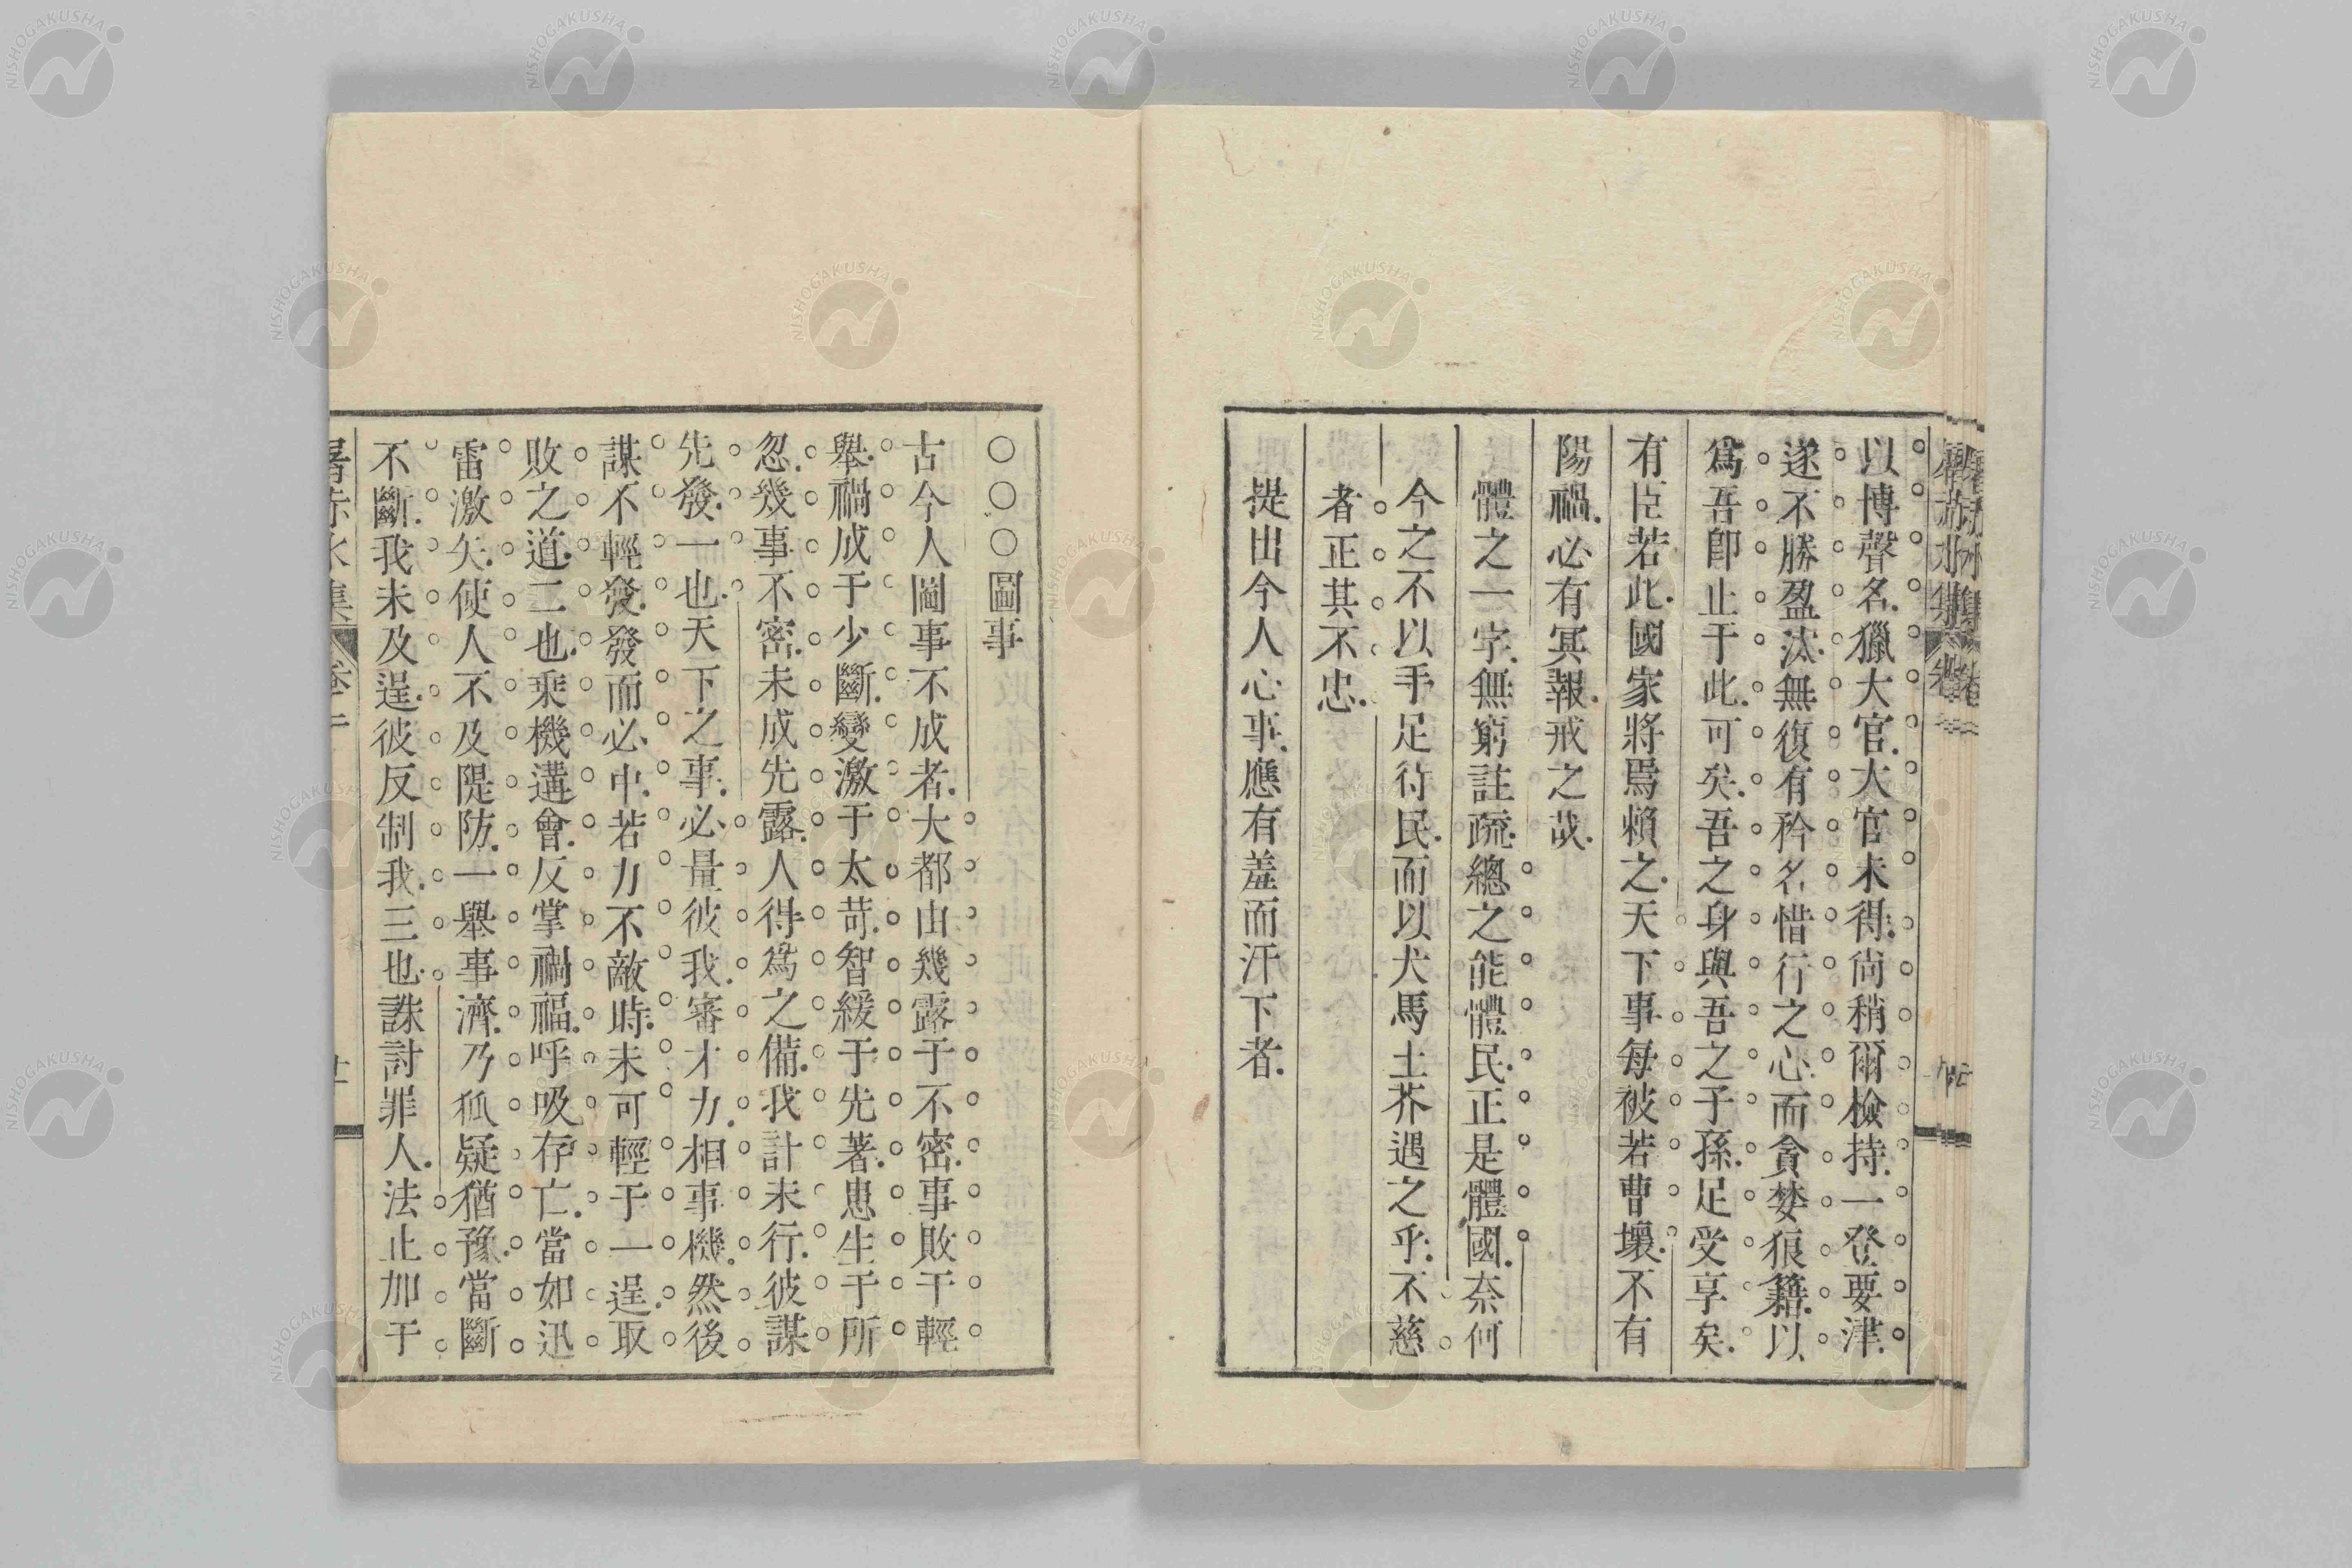 以博聲名獵大官大官未得尚稍爾檢持一登要津
遂不勝盈汰無復有矜名惜行之心而貪婪狼籍以
爲吾卽止于此可矣吾之身與吾之子孫足受享矣
有臣若此國家將焉賴之天下事每被若曹壞不有
陽禍必有冥報戒之哉
體之一字無窮註疏總之能體民正是體國柰何
今之不以手足待民而以犬馬土芥遇之乎不慈
者正其不忠
提出今人心事應有羞而汗下者
○○○圖事
古今人圖事不成者大都由幾露于不密事敗于輕
舉禍成于少斷變激于太苛智緩于先著患生于所
忽幾事不密未成先露人得爲之備我計未行彼謀
先發一也天下之事必量彼我審才力相事機然後
謀不輕發發而必中若力不敵時未可輕于一逞取
敗之道二也乘機遘會反掌禍福呼吸存亡當如迅
雷激矢使人不及隄防一舉事濟乃狐疑猶豫當斷
不斷我未及逞彼反制我三也誅討罪人法止加于
屠赤水集 卷二十
NISHOGAKUSHA